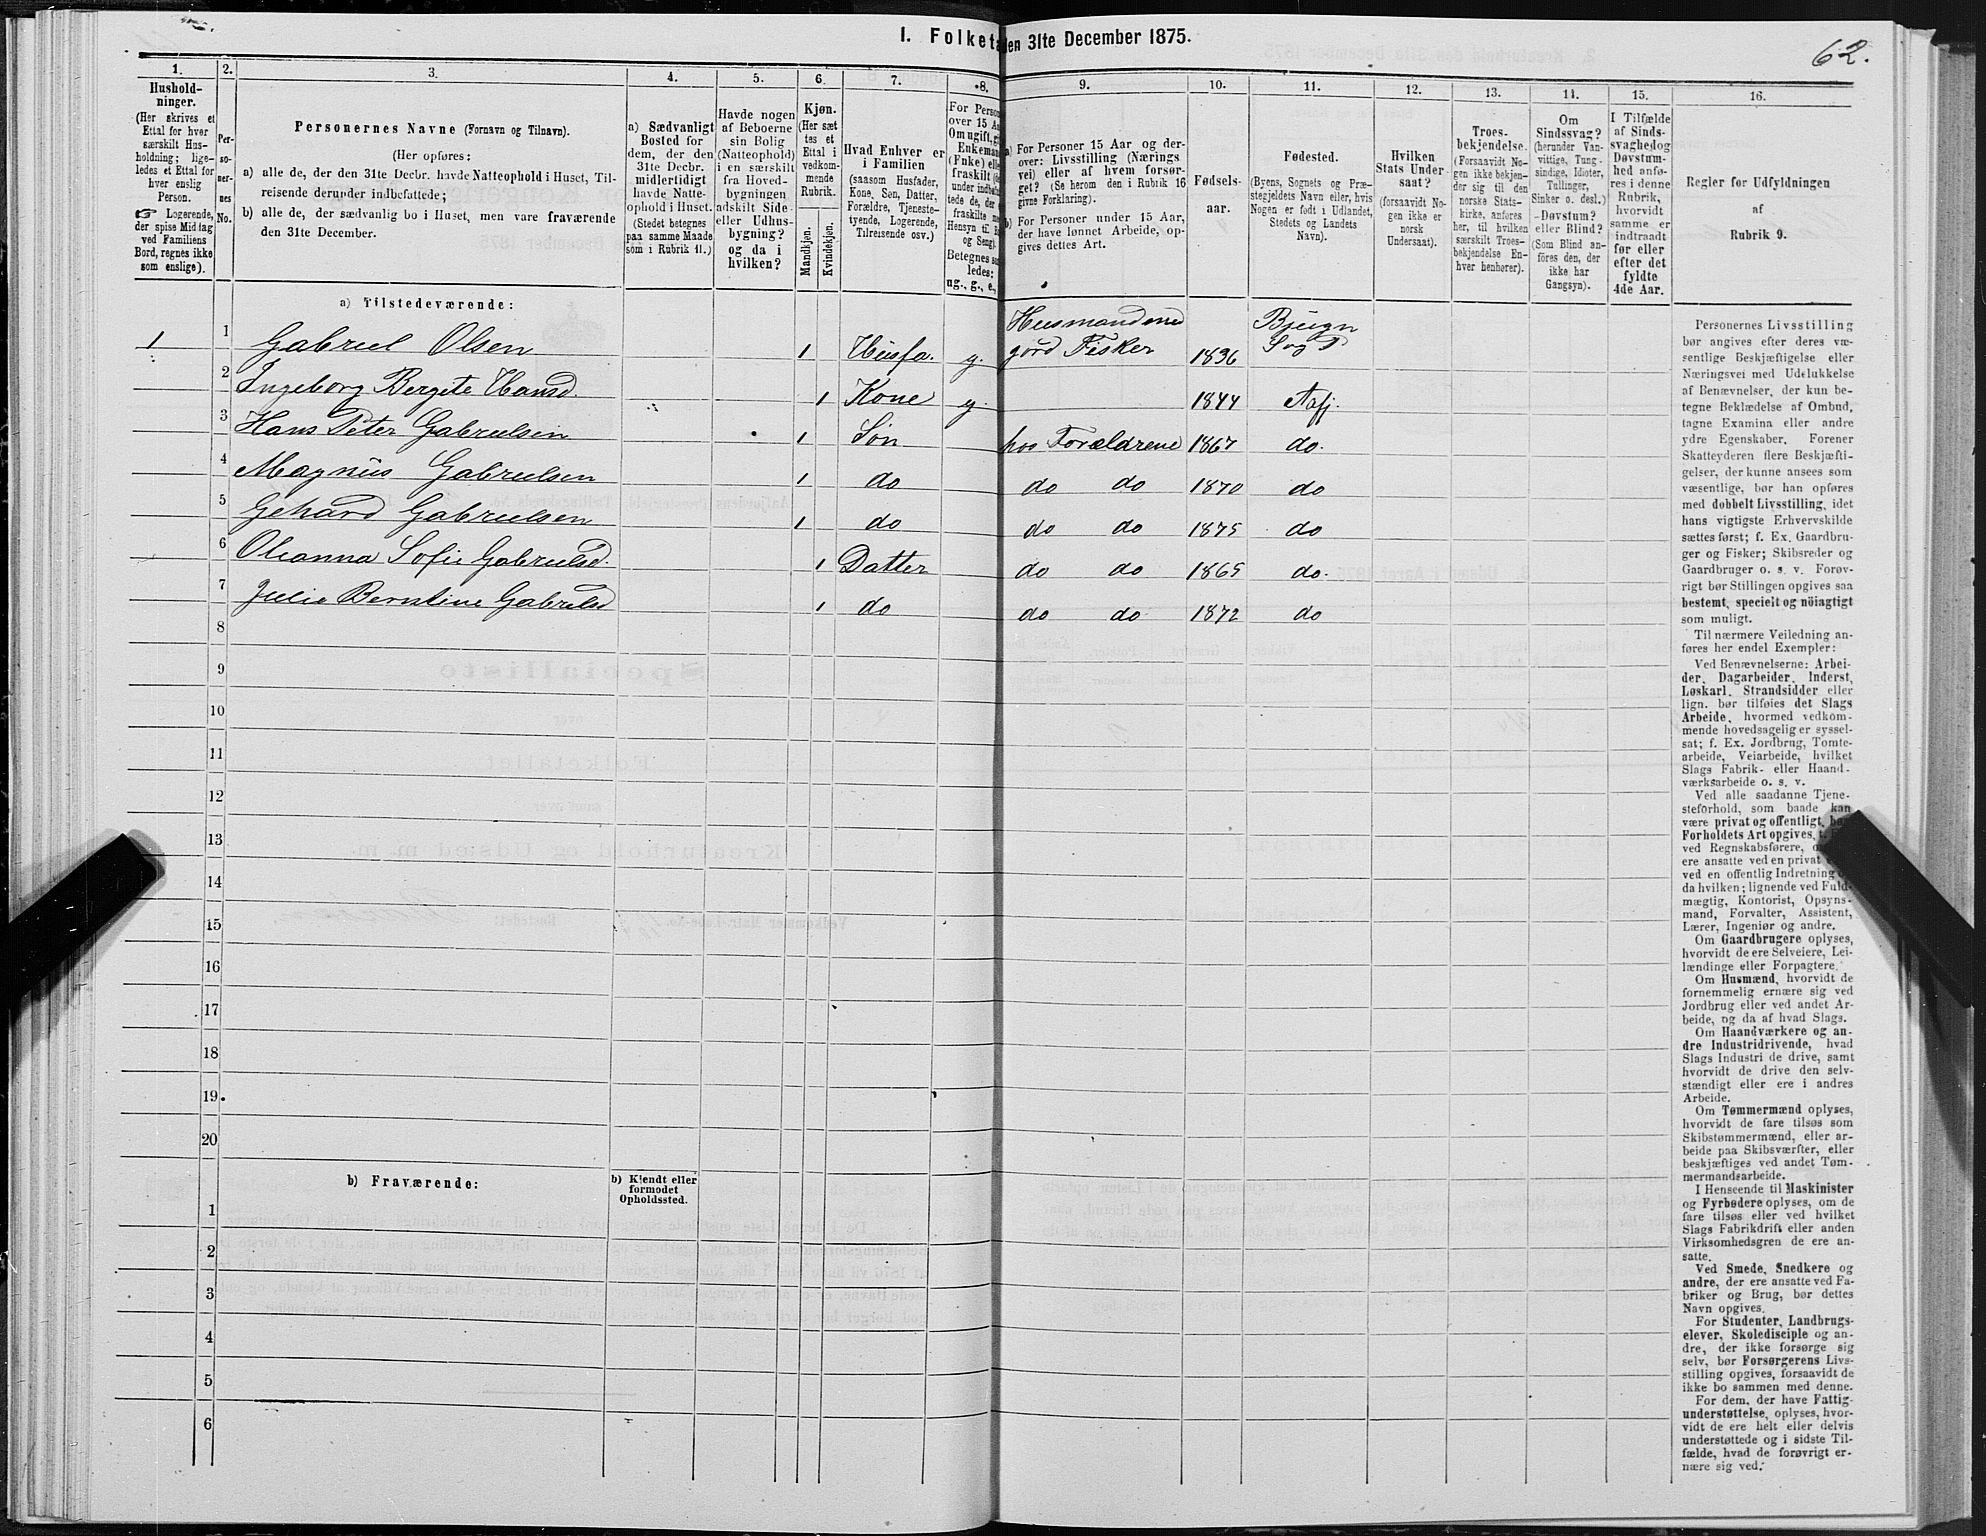 I. Folketa
den 31te December 1875.
62.
1.
2.
3.
4.
5.
6.
7.
8.
9.
10.
11.
12.
13.
14.
15.
16.
Hushold-
ninger.
(Her skrives et
Ettal for hver
særskilt Hus-
holdning; lige-
ledes et Ettal for
hver enslig
Person.
☞ Logerende,
der spise Middag
ved Familiens
Bord, regnes ikke
som enslige).
Per-
so-
ner-
nes
No.
Personernes Navne (Fornavn og Tilnavn).
(Her opføres:
a) alle de, der den 31te Decbr. havde Natteophold i Huset, Til-
reisende derunder indbefattede;
b) alle de, der sædvanlig bo i Huset, men vare fraværende
den 31te December.
a) Sædvanligt
Bosted for
dem, der den
31te Decbr.
midlertidigt
havde Natte-
ophold i Huset.
(Stedet betegnes
paa samme Maade
som i Rubrik 11.)
Havde nogen
af Beboerne
sin Bolig
(Natteophold)
i en særskilt
fra Hoved-
bygningen
adskilt Side-
eller Udhus-
bygning?
og da i
hvilken?
Kjøn.
(Her sæt
tes et
Ettal i
vedkom-
mende
Rubrik.
Mandkjøn.
Kvindekjøn.
Hvad Enhver er
i Familien
(saasom Husfader,
Kone, Søn, Datter,
Forældre, Tjeneste-
tyende, Logerende,
Tilreisende osv.)
For Person
over 15 Aa
Om ugift, g
Enkeman
(Fnke) elle
fraskilt
under indbefat
tede de, der
fraskilte me
Hensyn til B
og Seng).
Betegnes saa
ledes:
ug., g., e.,
a) For Personer 15 Aar og der-
over: Livsstilling (Nærings
vei) eller af hvem forsør-
get? (Se herom den i Rubrik 16
givne Forklaring).
b) For Personer under 15 Aar,
der have lønnet Arbeide, op-
gives dettes Art.
Fødsels-
aar.
Fødested.
(Byens, Sognets og Præ-
stegjeldets Navn eller, hvis
Nogen er født i Udlandet,
Stedets og Landets
Navn).
Hvilken
Stats Under
saat?
(forsaavidt No-
gen ikke er
norsk
Undersaat).
Troes-
bekjendelse.
(Forsaavidt No-
gen ikke bekjen-
der sig til den
norske Stats-
kirke, anføres
her, til hvilken
særskilt Troes-
bekjendelse En-
hver henhører).
Om
Sindssvag?
(herunder Van-
vittige, Tung-
sindige, Idioter,
Tullinger,
Sinker o. desl.)
Døvstum?
eller Blind?
(Som Blind an-
føres den, der
ikke har
Gangsyn).
I Tilfælde
af Sinds-
svaghed og
Døvstum-
hed anfø-
res i denne
Rubrik,
hvorvidt
samme er
indtraadt
før eller
efter det
fyldte
4de Aar.
Regler for Udfyldningen
af
Rubrik 9.
a) Tilstedeværende:
1 1 Gabriel Olsen 1 Husfa. g. Husmand med gård Fisker 1836 Bjugn Sog P
2 Ingeborg Bergite Hansd. 1 Kone g. 1844 Aafj.
3 Hans Peter Gabrielsen 1 Søn hos Forældrene 1867 do.
4 Magnus Gabrielsen 1 do do do 1870 do
5 Gehard Gabrielsen 1 do do do 1875 do
6 Oleanna Sofie Gabrielsd. 1 Datter do do 1865 do.
7 Julie Berntine Gabrielsd 1 do do do 1872 do
8
9
10
11
12
13
14
15
16
17
18
19
20
b) Fraværende:
b) Kjendt eller
formodet
Opholdssted.
1
2
3
4
5
6
Personernes Livsstilling
bør angives efter deres væ-
sentlige Beskjæftigelse eller
Næringsvei med Udelukkelse
af Benævnelser, der kun be-
tegne Beklædelse af Ombud,
tagne Examina eller andre
ydre Egenskaber. Forener
Skatteyderen flere Beskjæfti-
gelser, der kunne ansees som
væsentlige, bør han opføres
med dobbelt Livsstilling, idet
hans vigtigste Erhvervskilde
sættes først; f. Ex. Gaardbru-
ger og Fisker; Skibsreder og
Gaardbruger o. s. v. Forøv-
rigt bør Stillingen opgives saa
bestemt, specielt og nöiagtigt
som muligt.
Til nærmere Veiledning an-
føres her endel Exempler:
Ved Benævnelserne: Arbei-
der, Dagarbeider, Inderst,
Løskarl, Strandsidder eller
lign. bør tilføies det Slags
Arbeide, hvormed vedkom-
mende hovedsagelig er syssel-
sat; f. Ex. Jordbrug, Tomte-
arbeide, Veiarbeide, hvilket
Slags Fabrik- eller Haand-
værksarbeide o. s. v.
Ved alle saadanne Tjene-
steforhold, som baade kan
være privat og offentligt,
Forholdets Art opgives,
ved Regnskabsførere,
ere ansatte ved en privat
ved en offentlig Indretning
da hvilken; lignende ved Fuld-
mægtig, Kontorist, Opsyns-
mand, Forvalter, Assistent,
Lærer, Ingeniør og andre.
Om Gaardbrugere oplyses,
hvorvidt de ere Selveiere, Lei-
lændinge eller Forpagtere.
Om Husmænd, hvorvidt de
fornemmelig ernære sig ved
Jordbrug eller ved andet Ar-
beide, og da af hvad Slags.
Om Haandværkere og an-
dre Industridrivende, hvad
Slags Industri de drive, samt
hvorvidt de drive den selv-
stændigt eller ere i andres
Arbeide.
Om Tømmermænd oplyses,
hvorvidt de fare tilsøs som
Skibstømmermænd, eller ar-
beide paa Skibsværfter, eller
beskjæftiges ved andet Tøm-
mermandsarbeide.
I Henseende til Maskinister
og Fyrbødere oplyses, om de
fare tilsøs eller ved hvilket
Slags Fabrikdrift eller anden
Virksomhedsgren de ere an-
satte.
Ved Smede, Snedkere og
andre, der ere ansatte ved Fa-
briker og Brug, bør dettes
Navn opgives.
For Studenter, Landbrugs-
elever, Skoledisciple og an-
dre, der ikke forsørge sig
selv, bør Forsørgerens Livs-
stilling opgives, forsaavidt de
ikke bo sammen med denne.
For dem, der have Fattig-
understøttelse, oplyses, hvor-
vidt de ere helt eller delvis
understøttede og i sidste Til-
fælde, hvad de forøvrigt er-
nære sig ved.